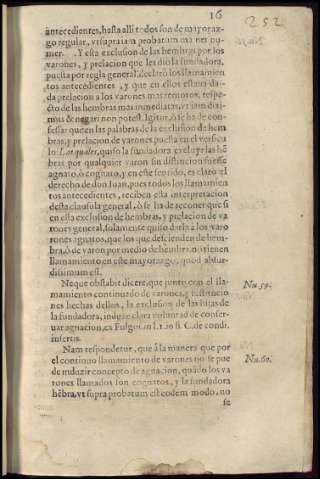 16
252
antecedentes, hasta alli todos son de mayoraz-
go regular, vt supra iam probatum manet nu-
mer. Y esta exclusion de las hembras por los
varones, y prelacion que les dió la fundadora,
puesta por regla general, declaró los llamamien
tos antecedentes, y que en ellos estaua da-
da prelacion a los varones mas remotos, respe-
cto de las hembras mas inmediatas, vt iam dixi-
mus & negari non potest. Igitur, ò se ha de con-
fessar que en las palabras de la exclusion de hem-
bras, y prelacion de varones puesta en el versicu
lo Los quales, quiso la fundadora excluyr las hẽ
bras por qualquier varon sin distincion fuesse
agnato, ò cognato, y en este sentido, es claro el
derecho de don Iuan, pues todos los llamamien
tos antecedentes, reciben esta interpretacion
desta clausula general, ò se ha de reconer que si
en esta exclusion de hembras, y prelacion de va
rones general, solamente quiso darla à los varo
rones agnatos, que los que descienden de hem-
bra, ò de varon por medio de hembra, no tienen
llamamiento en este mayorazgo, quod absur-
dissimum est.
Neque obstabit dicere, que junto con el lla- Nu. 59.
mamiento continuado de varones, y institucio
nes hechas dellos, la exclusion de las hijas de
la fundadora, induze clara voluntad de conser-
uar agnacion, ex Fulgos. in l. 1. in fi. C. de condi.
insertis.
Nam respondetur, que à la manera que por
el continuo llamamiento de varones no se pue Nu. 60.
de induzir concepto de agnacion, quãdo los va
rones llamados son cognatos, y la fundadora
hẽbra, vt supra probatum est eodem modo, no
se